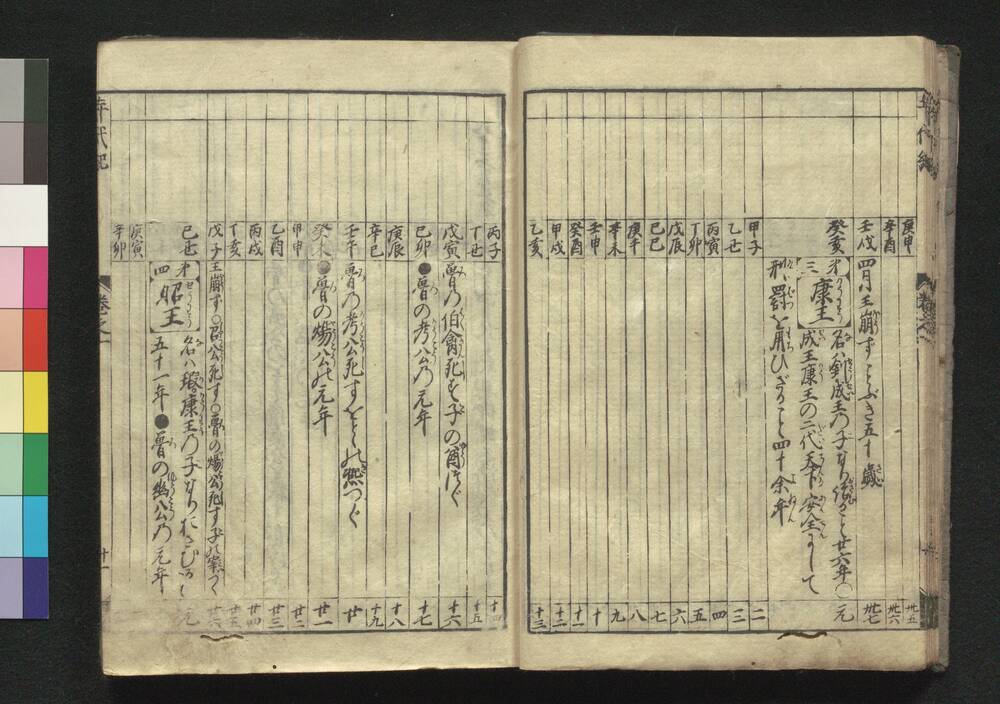 年代紀
巻之一
庚申 卅五
辛酉 卅六
壬戌 四月王崩ずことぶき五十歳 卅七
癸亥 㐧三 康王 名ハ釗成王の子なり 廿六年〇 元
成王康王の二代天下安全にして
刑罰を用ひざること四十余年
甲子 二
乙丑 三
丙寅 四
丁卯 五
戊辰 六
己巳 七
庚午 八
辛未 九
壬申 十
癸酉 十一
甲戌 十二
乙亥 十三
丙子 十四
丁丑 十五
戊寅 魯の伯禽死す子の酋つぐ 十六
己卯 ●魯の考公の元年 十七
庚辰 十八
辛巳 十九
壬午 魯の考公死すおとゝの熈つぐ 廿
癸未 ●魯の煬公の元年 廿一
甲申 廿二
乙酉 廿三
丙戌 廿四
丁亥 廿五
戊子 王崩ず〇召公死す〇魯の煬公死す子の宰つぐ 廿六
己丑 㐧四 昭王 名ハ瑕康王の子なり 元
五十一年●魯の幽公の元年
庚寅
辛卯
年代紀
巻之一
十一